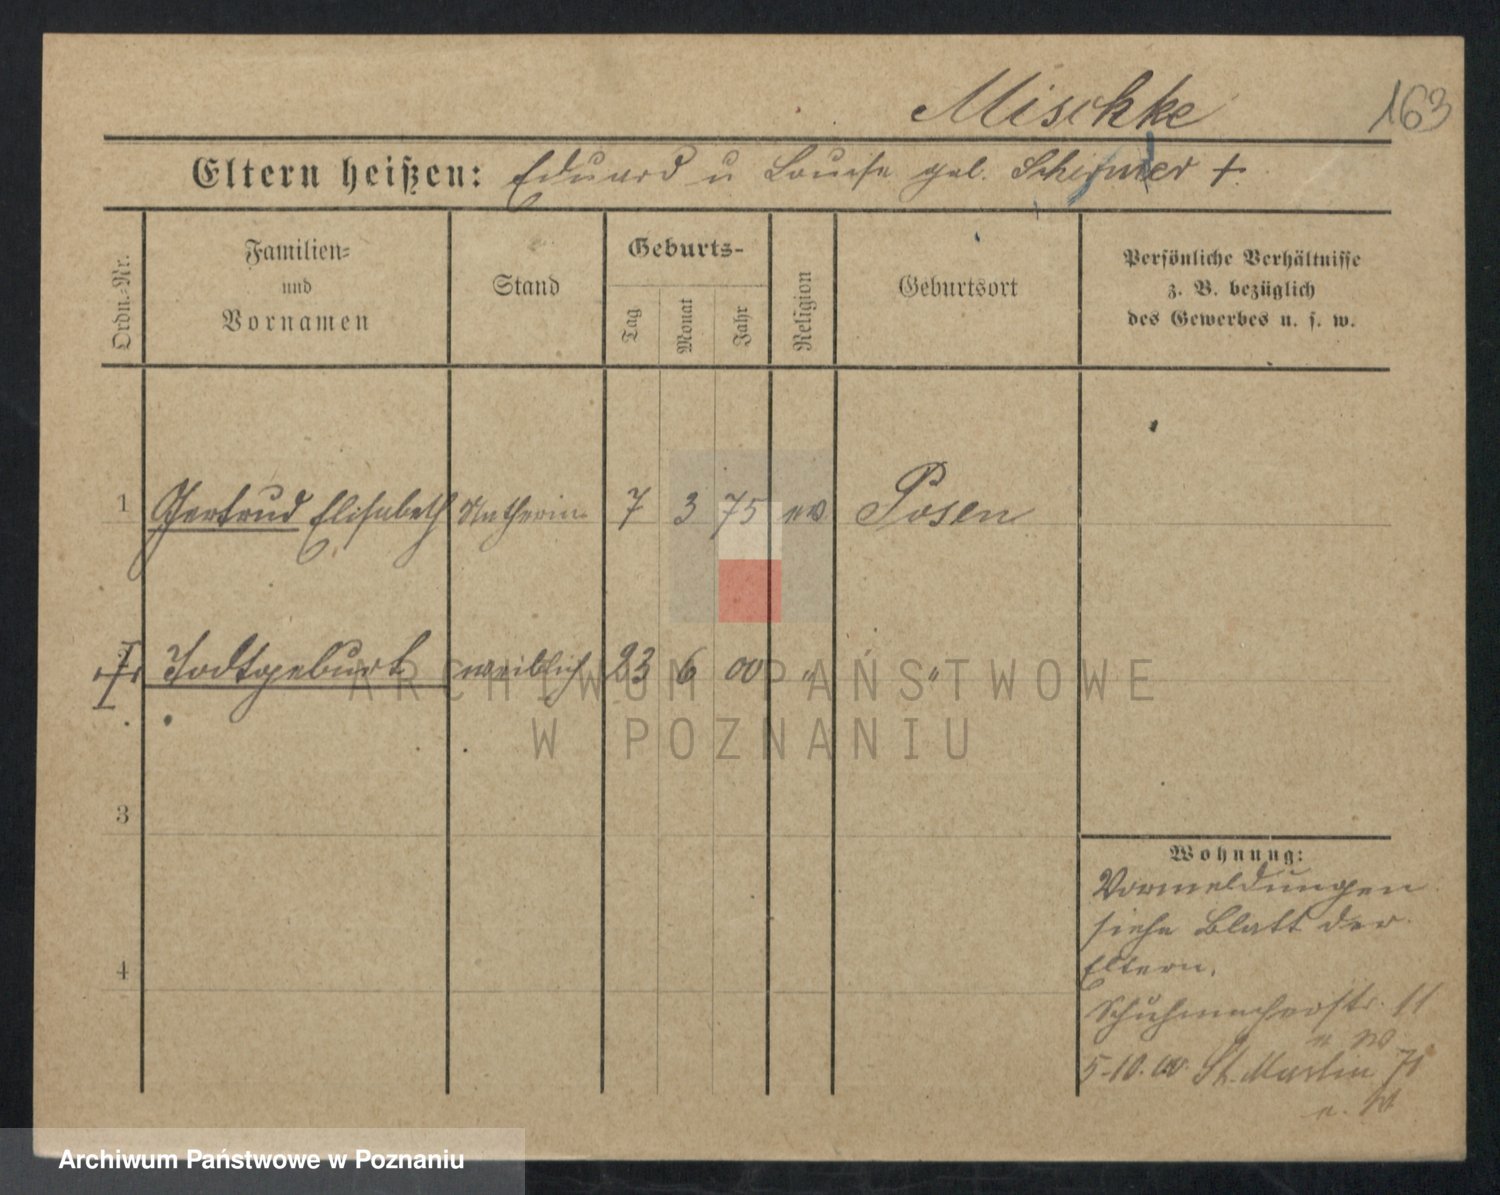 Mischke 163
Eltern heißen: Eduard u Louise geb. Schirmer +
Ordn.-Nr.
Familien-
und
Vornamen
Stand
Geburts-
Tag
Monat
Jahr
Religion
Geburtsort
Persönliche Verhältnisse
z. B. bezüglich
des Gewerbes u. s. w.
1 Gertrud Elisabeth 7 3 75 ev Posen
Todtgeburt weiblich 23 6 00 " "
3
4
Wohnung:
Vormeldungen
siehe Blatt der
Eltern.
Schuhmacherstr. 11
5-10. 00. St. Martin 71
ARCHIWUM PAŃSTWOWE
W POZNANIU
Archiwum Państwowe w Poznaniu